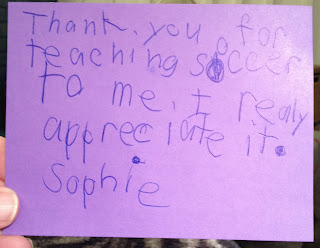 Thank you for
teaching soccer
to me. I realy
appreciate it.
Sophie